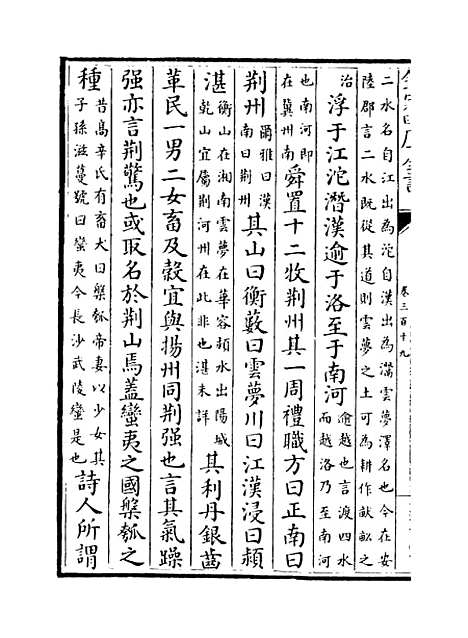 卷三百十九
二水名自江出為沱自漢出為灊雲夢澤名也今在安
陸郡言二水既從其道則雲夢之土可為耕作畎畝之
治 浮于江沱潛漢逾于洛至于南河 逾越也言渡四水 而越洛乃至南河
也南河即 在冀州南 舜置十二牧荆州其一周禮職方曰正南曰
荆州 爾雅曰漢 南曰荆州 其山曰衡藪曰雲夢川曰江漢浸曰潁
湛 衡山在湘南雲夢在華容潁水出陽城 乾山宜屬荆河州在此非也湛未詳 其利丹銀齒
革民一男二女畜及穀宜與揚州同荆强也言其氣躁
强亦言荆驚也或取名於荆山焉蓋蠻夷之國槃瓠之
種 昔髙辛氏有畜犬曰槃瓠帝妻以少女其 子孫滋蔓號曰蠻夷今長沙武陵蠻是也 詩人所謂